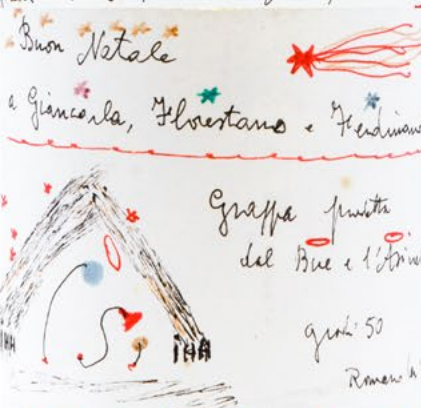 Buon Natale
a Giancarla, Florestano e Ferdinano
Grappa
dal Bue e l'Asine
gradi 50
Romano